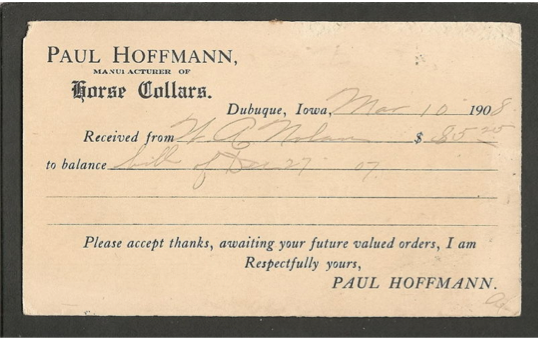 PAUL HOFFMANN,
MANUFACTURER OF
Horse Collars.
Dubuque, Iowa, Mar 10 1908
Received from W. A. Nolan $ 85 25
to balance bill of Dec 27 07
Please accept thanks, awaiting your future valued orders, I am
Respectfully yours,
PAUL HOFFMANN.